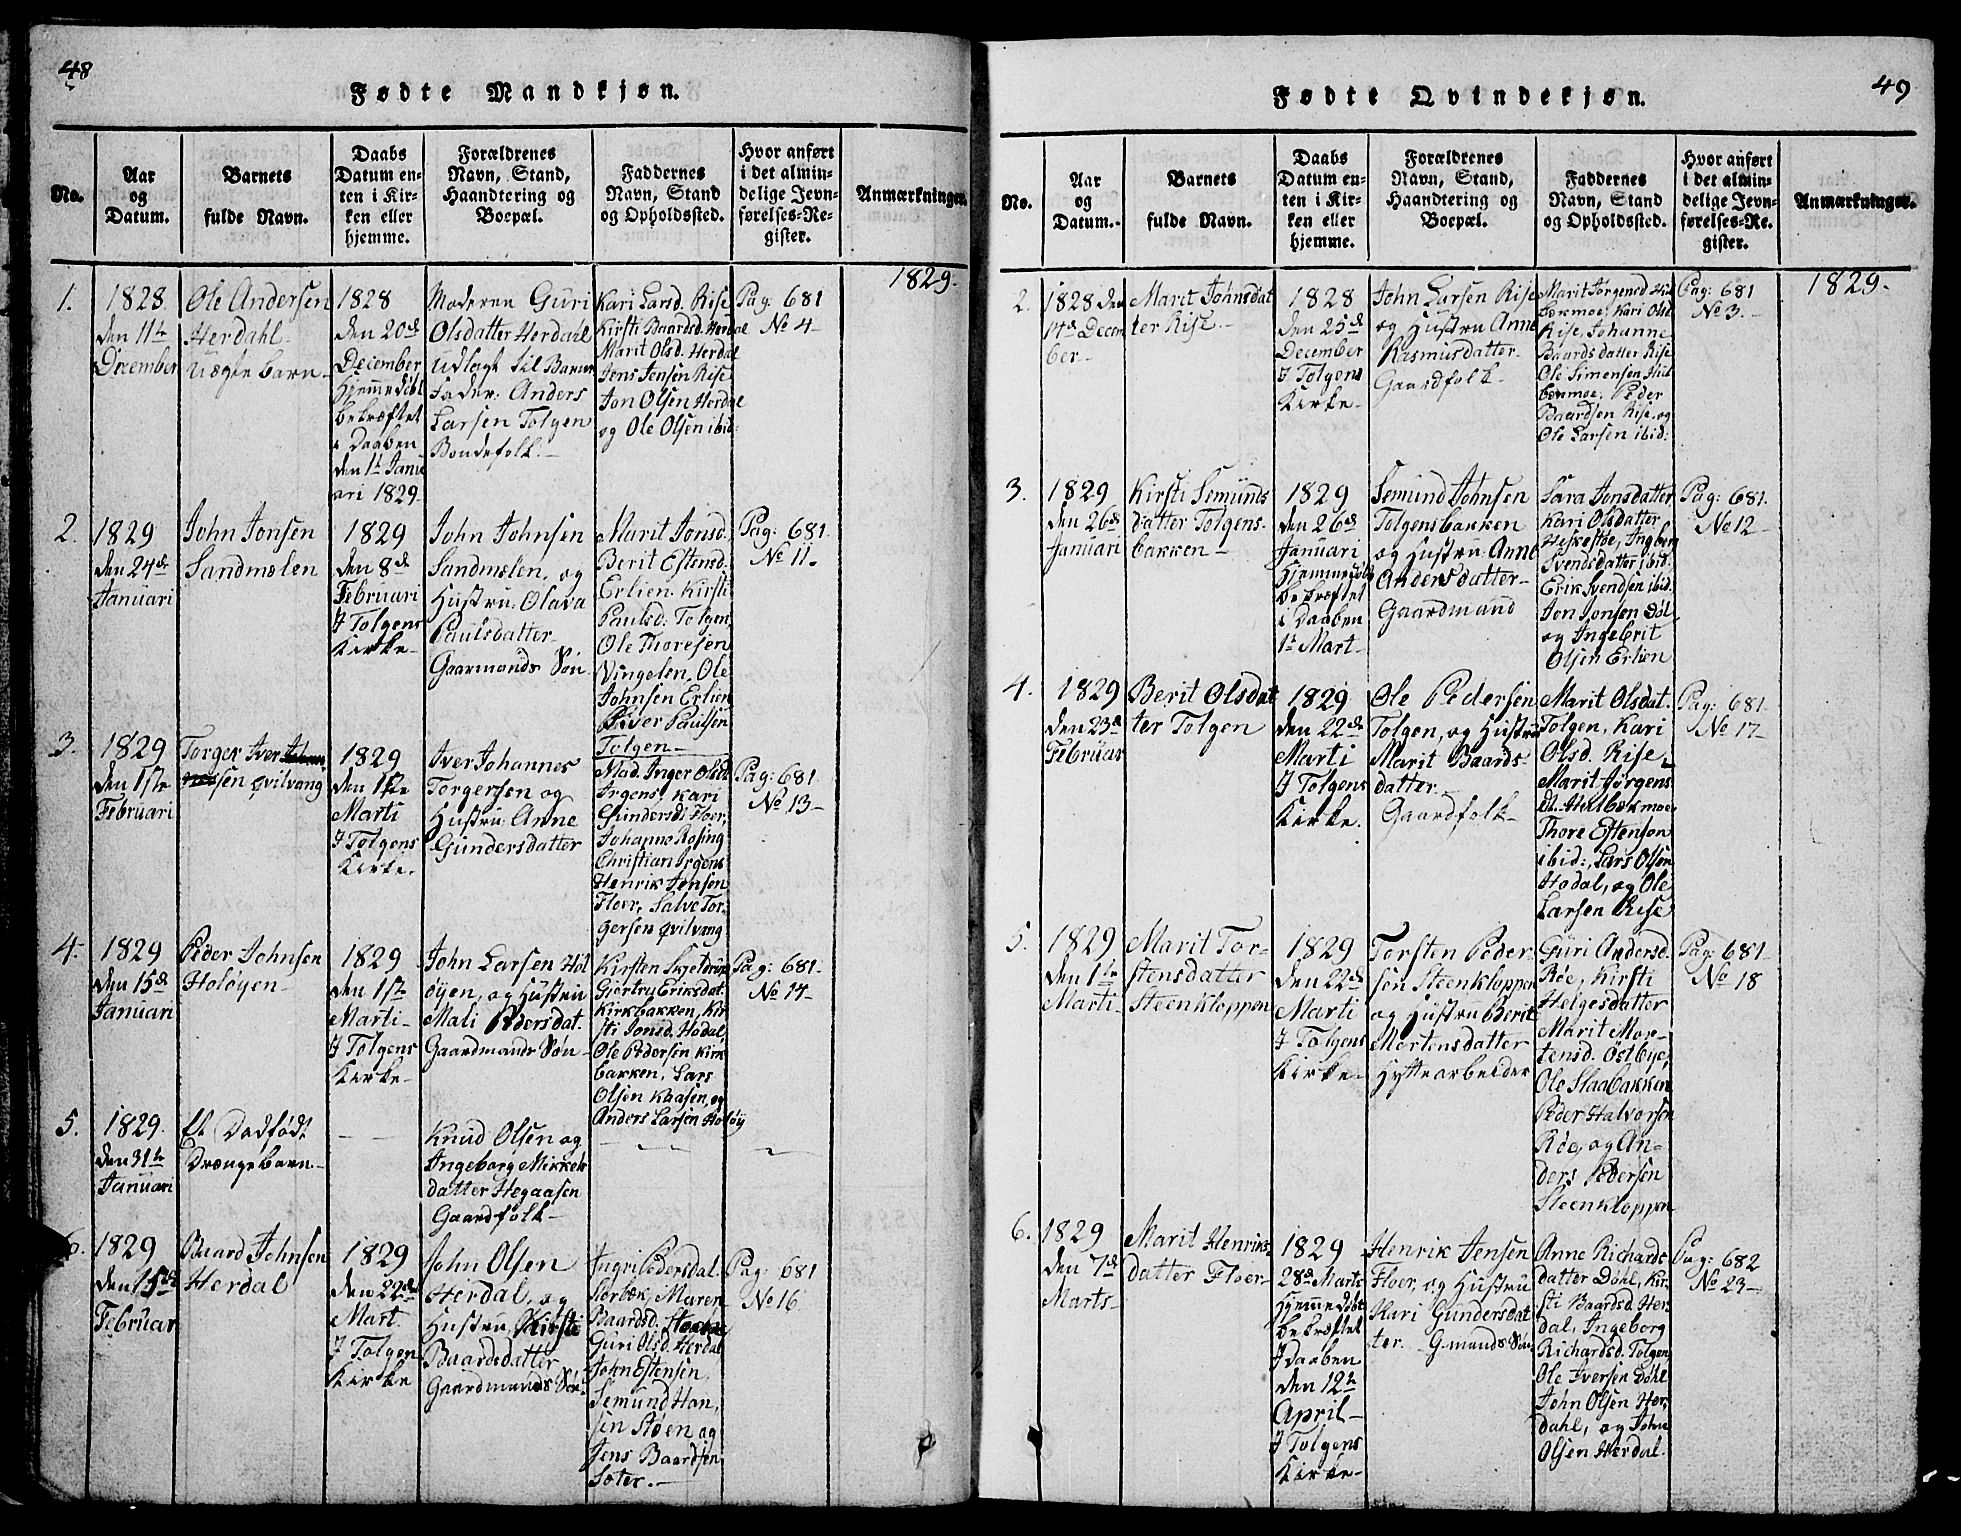 48
Fødte Mandkjøn.
No.
Aar
og
Datum.
Barnets
fulde Navn.
Daabs
Datum en-
ten i Kir-
ken eller
hjemme.
Forældrenes
Navn, Stand,
Haandtering og
Boepæl.
Faddernes
Navn, Stand
og Opholdssted.
Hvor anført
i det almin-
delige Jevn-
førelses-Re-
gister.
Anmærkninger.
1829.
1.
1828
den 11te
December
Ole Andersen
Herdahl
uægte barn
1828
den 20de
December
hjemmedöbt
bekræftet
i Daaben
den 1te Janu
ari 1829
Moderen Guri
Olsdatter Herdahl
udlagt til Barne
fader: Anders
Larsen Tolgen
Bondefolk.
Kari Larsd. Rise
Kirsti Baardsd. Herdal
Marit Olsd. Herdal
Jens Jensen Rise
Jon Olsen Herdal
og Ole Olsen ibid:
Pag: 681
No 4
2.
1829
den 24de
Januari
John Jonsen
Sandmælen
1829
den 8de
Februari
I Tolgens
Kirke
John Johnsen
Sandmælen, og
Hustru: Olava
Paulsdatter
Gaarmands Søn
Marit Jonsd.
Berit Estensd.
Erlien. Kirsti
Paulsd: Tolgen,
Ole Thoresen
Vingelen, Ole
Johnsen Erlien
Paulsen
Tolgen
Pag: 681
No 11.
3.
1829
den 1ste
Februari
Torger Iver
sen Qvilvang
1829
den 1ste
Marti
I Tolgens
Kirke.
Iver Johannes
Torgersen og
Hustru: Anne
Gundersdatter
Mad. Inger Olsd.
Irgens, Kari
Gundersd: Floer,
Johanne Rosing
Christian Irgens
Henrik Jensen
Floer, Salve Tor-
gersen Qvilvang
Pag: 681
No 13
4.
1829
den 15de
Januari
Peder Johnsen
Holöyen
1829
den 1ste
Marti
I Tolgens
Kirke
John Larsen Hol
öyen, og Hustru
Mali Pedersdat.
Gaardmands Søn
Kirsten
Giertru Eriksdat.
Kirkbakken, Kir
sti Jonsd. Hodal,
Ole Pedersen Kirk
bakken, Lars
Olsen Kaasen, og
Anders Larsen Holöy
Pag: 681
No 14
5.
1829
den 31te
Januari
Et Dødfødt
Drengebarn
Knud Olsen og
Ingeborg Mikkels
datter Hegaasen
Gaardfolk
6.
1829
den 15de
Februar
Baard Johnsen
Herdal
1829
den 22de
Mart.
I Tolgen
Kirke
John Olsen
Herdal, og
Hustru Kirsti
Baardsdatter
Gaardmands Søn
Ingri Pedersdal.
Sorbæk, Maren
Baardsd.
Guri Olsd. Herdal
John Estensen
Semund Han,
sen Støen og
Jens Baardsen
Soter.
Pag: 681
No 16
49
Fødte Qvindekjøn.
No.
Aar
og
Datum.
Barnets
fulde Navn.
Daabs
Datum en-
ten i Kir-
ken eller
hjemme.
Forældrenes
Navn, Stand,
Haandtering og
Boepæl.
Faddernes
Navn, Stand
og Opholdssted.
Hvor anført
i det almin-
delige Jevn-
førelses-Re-
gister.
Anmærkninger.
1829.
2.
1828 den
14de Decem
ber
Marit Johnsdat
ter Rise
1828
den 25de
December
I Tolgens
Kirke
John Larsen Rise
og Hustru Anne
Rasmusdatter
Gaardfolk
Marit Jorgensd Hul
bækmoe, Kari Olsd
Rise, Johanne
Baardsdatter Rise
Ole Simensen Hul
bekmoe. Peder
Baardsen Rise, og
Ole Larsen ibid:
Pag: 681
No 3.
3.
1829
den 26de
Januari
Kirsti Semunds
datter Tolgens-
bakken
1829
den 26de
Januari
hjemmedöbt
bekræftet
i Daaben
1te Mart
Semund Johnsen
Tolgensbakken
og Hustru Anne
Andersdatter
Gaardmand
Sara Jonsdatter
Kari Olsdatter
Ingbor
Svendsdatter ibid.
Erik Svendsen ibid.
Jon Jonsen Döl
og Ingebrit
Olsen Erlien
Pag: 681.
No 12
4.
1829
den 23de
Februar
Berit Olsdat
ter Tolgen
1829
den 22de
Marti
I Tolgens
Kirke.
Ole Pedersen
Tolgen, og Hustru
Marit Baards
datter
Gaardfolk
Marit Olsdat.
Tolgen, Kari
Olsd. Rise,
Marit Jörgens
dt. Hulbækmoe
Thore Estensen
ibid:, Lars Olsen
Hodal, og Ole
Larsen Rise
Pag: 681
No 17
5.
1829
den 1te
Marti
Marit Tor-
stensdatter
Steenkloppen
1829
den 22de
Marti
I Tolgens
Kirke
Torsten Peder
sen Steenkloppen
og Hustru Berit
Mortensdatter
Hyttearbeider
Guri Andersd.
Röe, Kirsti
Helgesdatter
Marit Mor-
tensd. Östbye,
Ole Slaabakken
Peder Halvorsen
Röe, og An-
ders Pedersen
Steenkloppen
Pag: 681
No 18
6.
1829
den 7de
Marts
Marit Henriks
datter Floer
1829
28de Marts
hjemmedöbt
bekræftet
I Daaben
den 12te
April
I Tolgens
Kirke
Henrik Jensen
Floer, og Hustru
Kari Gundersdat
ter. Gmands Søn
Anne Richards
datter Döhl, Kir,
sti Baardsd. Her
dal, Ingeborg
Richardsd. Tolgen
Ole Iversen Döhl
John Olsen Her,
dahl, og John
Olsen Herdal.
Pag: 682
No 23